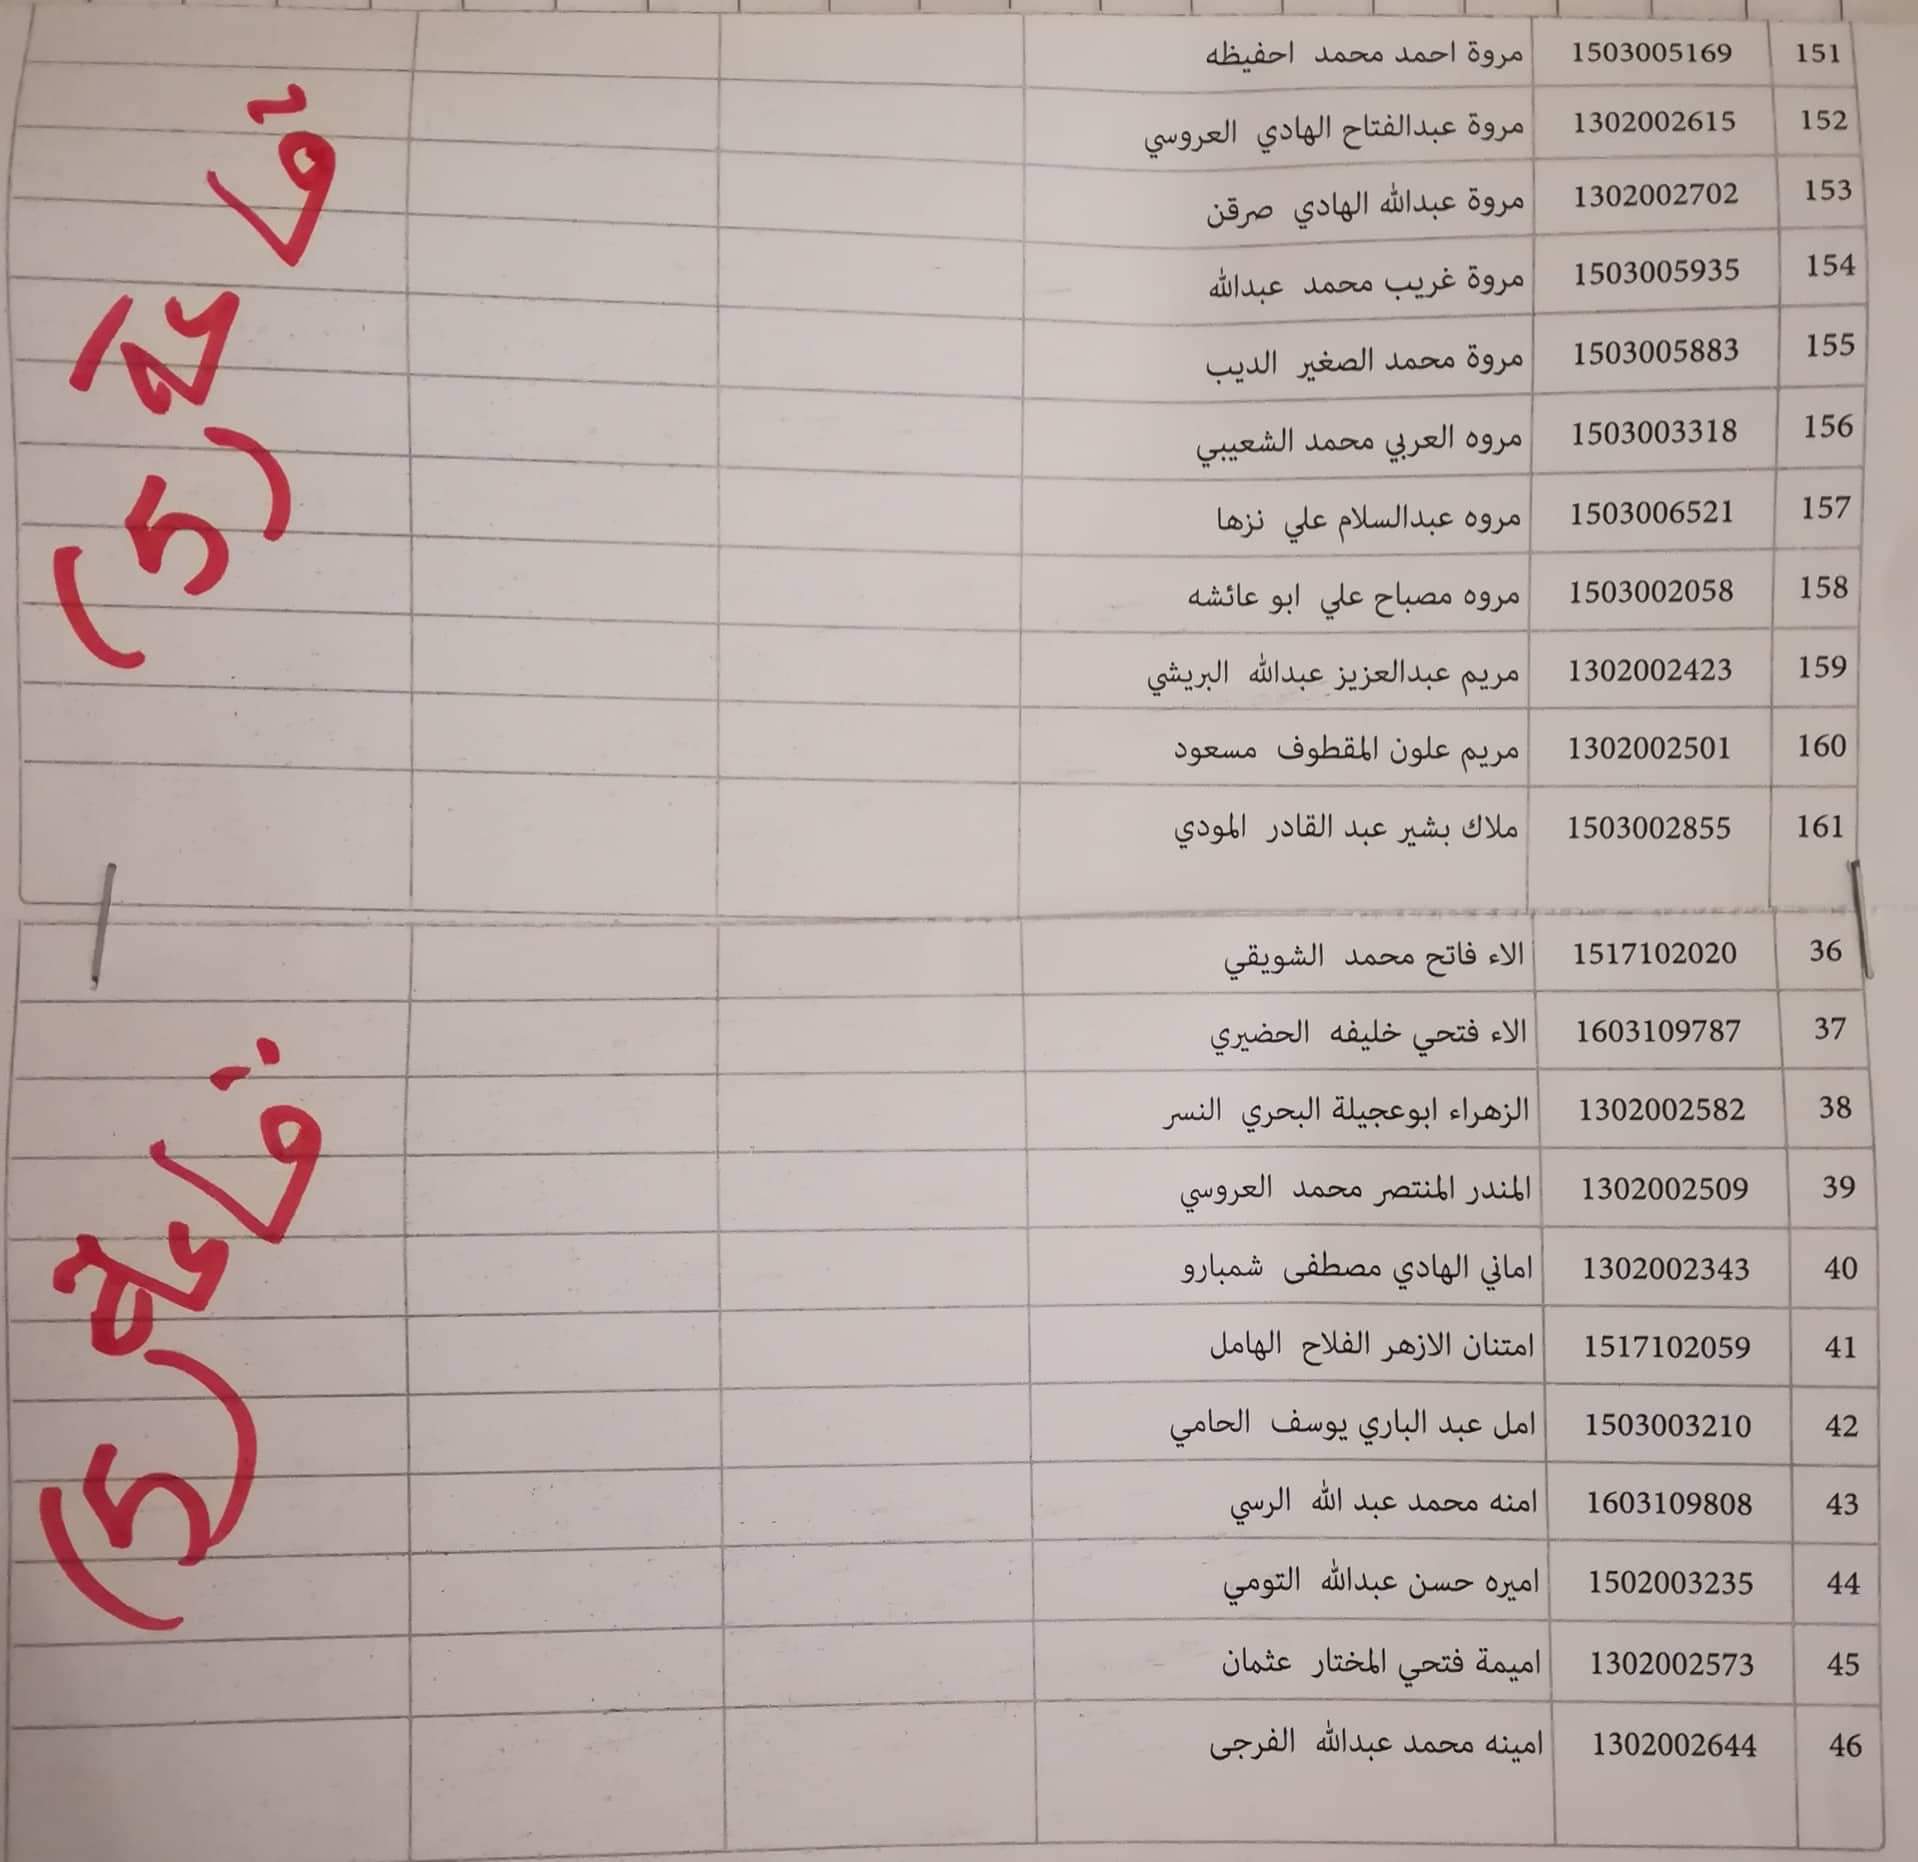 151 1503005169 مروة احمد محمد احفيظه
152 1302002615 مروة عبدالفتاح الهادي العروسي
153 1302002702 مروة عبدالله الهادي صرقن
154 1503005935 مروة غريب محمد عبدالله
155 1503005883 مروة محمد الصغير الديب
156 1503003318 مروه العربي محمد الشعيبي
157 1503006521 مروه عبدالسلام علي نزها
158 1503002058 مروه مصباح علي ابو عائشه
159 1302002423 مريم عبدالعزيز عبدالله البريشي
160 1302002501 مريم علون المقطوف مسعود
161 1503002855 ملاك بشير عبد القادر المودي
قاعة (5)
36 1517102020 الاء فاتح محمد الشويقي
37 1603109787 الاء فتحي خليفه الحضيري
38 1302002582 الزهراء ابوعجيلة البحري النسر
39 1302002509 المندر المنتصر محمد العروسي
40 1302002343 اماني الهادي مصطفى شمبارو
41 1517102059 امتنان الازهر الفلاح الهامل
42 1503003210 امل عبد الباري يوسف الحامي
43 1603109808 امنه محمد عبد الله الرسي
44 1502003235 اميره حسن عبدالله التومي
45 1302002573 اميمة فتحي المختار عثمان
46 1302002644 امينه محمد عبدالله الفرجى
قاعة (5)